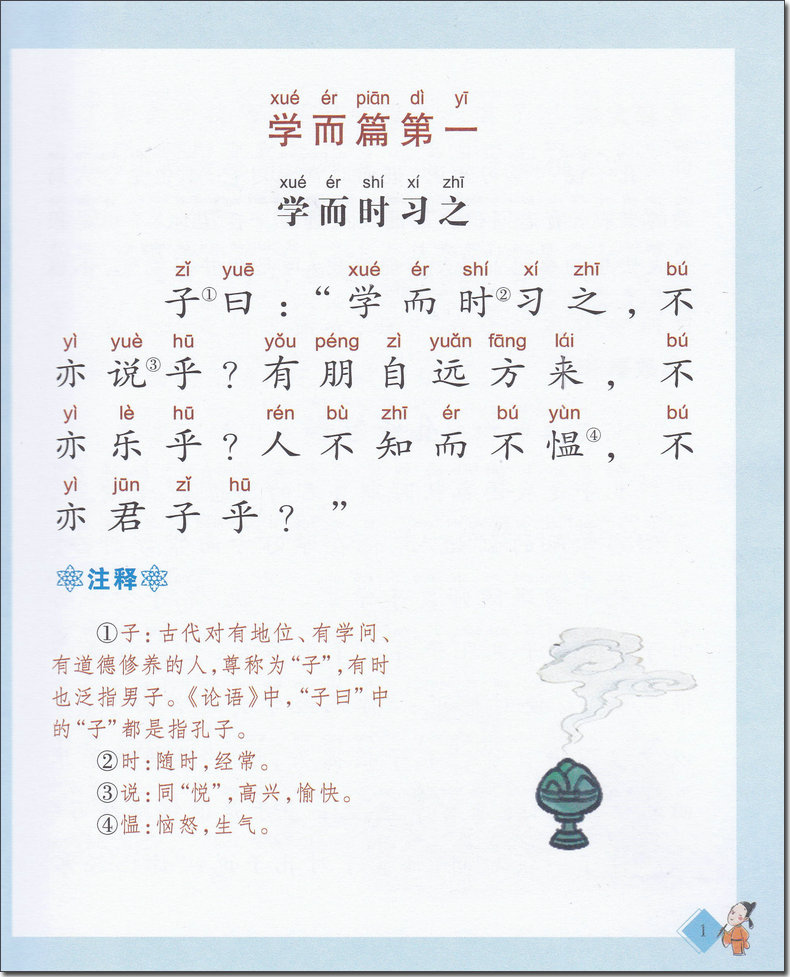 xué ér piān dì yī
学而篇第一
xué ér shí xí zhī
学而时习之
zǐ yuē xué ér shí xí zhī bú
子①曰：“学而时②习之，不
yì yuè hū yǒu péng zì yuǎn fāng lái bú
亦说③乎？有朋自远方来，不
yì lè hū rén bù zhī ér bú yùn bú
亦乐乎？人不知而不愠④，不
yì jūn zǐ hū
亦君子乎？”
注释
①子：古代对有地位、有学问、
有道德修养的人，尊称为“子”，有时
也泛指男子。《论语》中，“子曰”中
的“子”都是指孔子。
②时：随时，经常。
③说：同“悦”，高兴，愉快。
④愠：恼怒，生气。
1